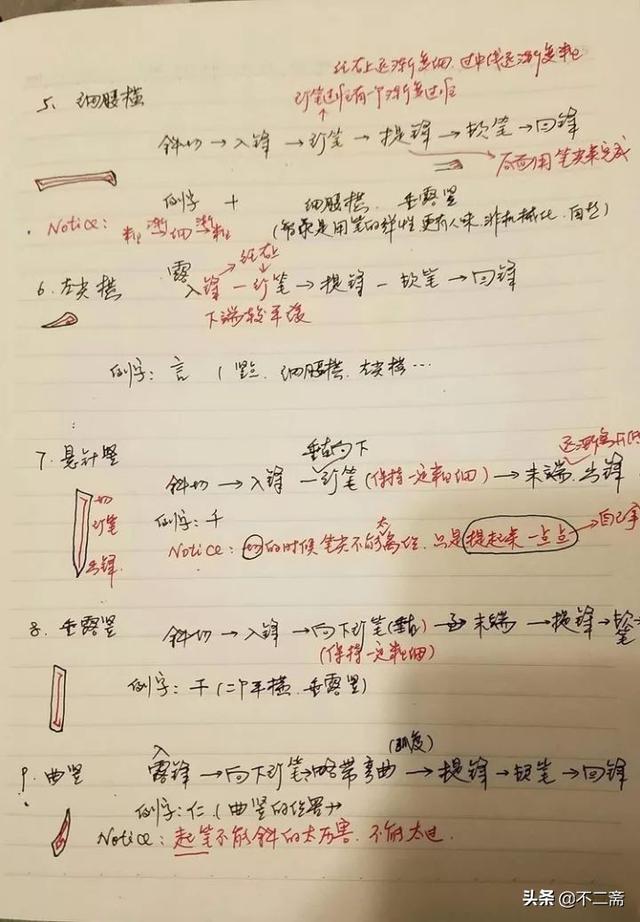 往右上逐渐变细,过中线逐渐变粗
行笔过程有一个渐变过程
5、细腰横
斜切→入锋→行笔→提锋→顿笔→回锋
后面用笔尖来完成
例字 十 细腰横、垂露竖
Notice: 粗渐细渐粗 (书家是用笔的弹性更有人味,非机械化,自然)
往右上
6、左尖横 露入锋—行笔→提锋—顿笔→回锋
下端较平缓
例字:言 (竖点、细腰横、左尖横…
垂直向下
7、悬针竖 斜切→入锋—行笔(保持一定粗细)→末端、出锋
切
行笔
出锋
例字:千
Notice:切的时候笔尖不能太离纸,只是提起来一点点
8、垂露竖 斜切→入锋→向下行笔(垂直)→末端→提锋→顿笔→
(保持一定粗细)
例字:干(二个平横、垂露竖)
(弧度)
9、曲竖 露入锋→向下行笔→略带弯曲→提锋→顿笔→回锋
例字:仁(曲竖的位置)
Notice:起笔不能斜的太厉害,不能太过.
头条 @不二斋